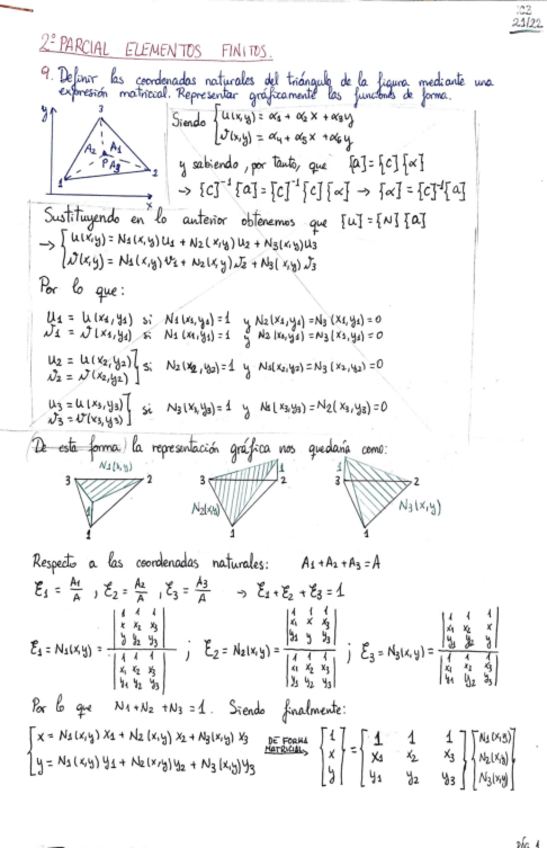 ICB
21/22
2º PARCIAL ELEMENTOS FINITOS.
9. Definir las coordenadas naturales del triángulo de la figura mediante una
expresión matricial. Representar gráficamente las funciones de forma.
y 3 A2 A1 P A3 1 2 x
Siendo { u(x,y) = α1 + α2 x + α3 y
v(x,y) = α4 + α5 x + α6 y
y sabiendo, por tanto, que {a} = [c] {α}
→ [c]⁻¹ {a} = [c]⁻¹ [c] {α} → {α} = [c]⁻¹ {a}
Sustituyendo en lo anterior obtenemos que {u} = [N] {a}
→ { u(x,y) = N1(x,y) u1 + N2(x,y) u2 + N3(x,y) u3
v(x,y) = N1(x,y) v1 + N2(x,y) v2 + N3(x,y) v3
Por lo que:
u1 = u(x1,y1) si N1(x1,y1) = 1 y N2(x1,y1) = N3(x1,y1) = 0
v1 = v(x1,y1) si N1(x1,y1) = 1 y N2(x1,y1) = N3(x1,y1) = 0
u2 = u(x2,y2)
v2 = v(x2,y2) ] si N2(x2,y2) = 1 y N1(x2,y2) = N3(x2,y2) = 0
u3 = u(x3,y3)
v3 = v(x3,y3) ] si N3(x3,y3) = 1 y N1(x3,y3) = N2(x3,y3) = 0
De esta forma la representación gráfica nos quedaría como:
N1(x,y)
3 2 1 1
3 1 2 N2(x,y) 1
1 3 2 N3(x,y) 1
Respecto a las coordenadas naturales: A1 + A2 + A3 = A
ξ1 = A1/A , ξ2 = A2/A , ξ3 = A3/A → ξ1 + ξ2 + ξ3 = 1
ξ1 = N1(x,y) = |1 1 1; x x2 x3; y y2 y3| / |1 1 1; x1 x2 x3; y1 y2 y3| ; ξ2 = N2(x,y) = |1 1 1; x1 x x3; y1 y y3| / |1 1 1; x1 x2 x3; y1 y2 y3| ; ξ3 = N3(x,y) = |1 1 1; x1 x2 x; y1 y2 y| / |1 1 1; x1 x2 x3; y1 y2 y3|
Por lo que N1 + N2 + N3 = 1. Siendo finalmente:
{ x = N1(x,y) x1 + N2(x,y) x2 + N3(x,y) x3
y = N1(x,y) y1 + N2(x,y) y2 + N3(x,y) y3
DE FORMA
MATRICIAL →
{1; x; y} = [1 1 1; x1 x2 x3; y1 y2 y3] {N1(x,y); N2(x,y); N3(x,y)}
Pág. 1